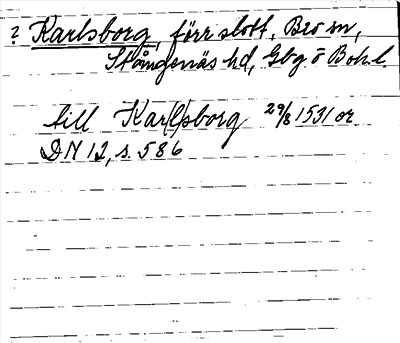 ? Karlsborg, förr slott, Bro sn,
Stångenäs hd, Gbg o Boh. l.
till Kar(l)sborg 29/8 1531 or
DN 12, s. 586